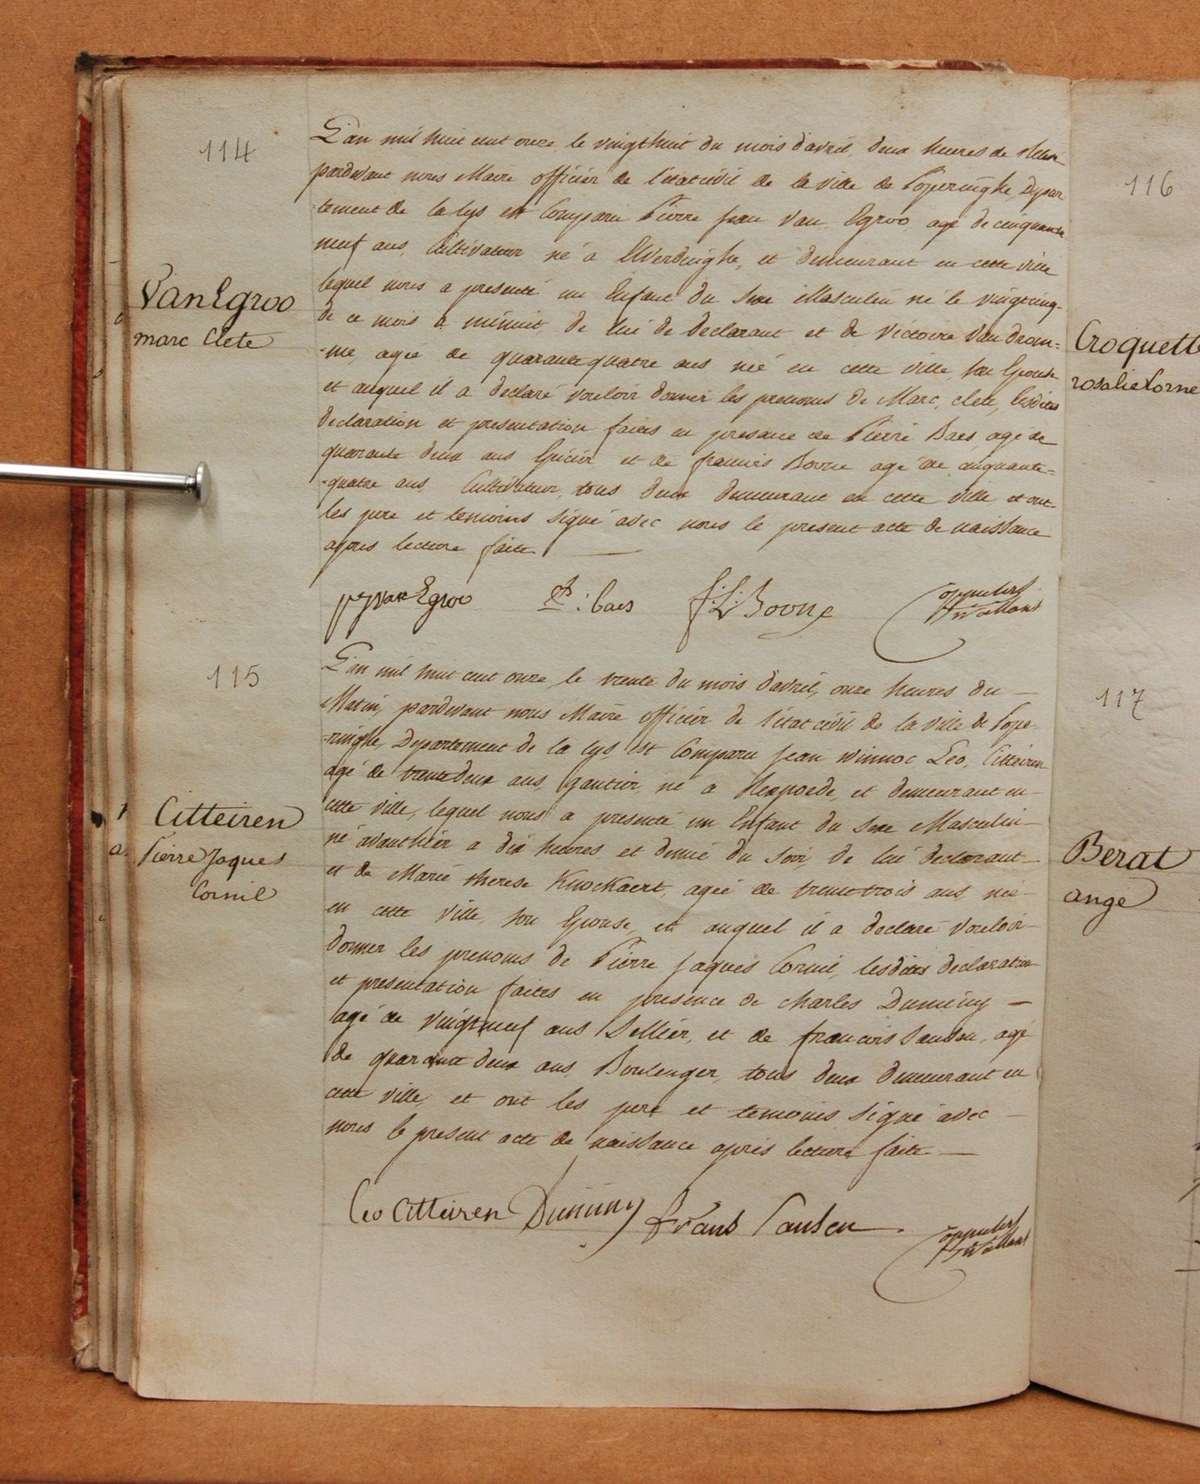 114
VanEgroo
marc Clete
L'an mil huit cent onze le vingthuit du mois d'avril, deux heures de
pardevant nous Maire officier de l'etat civil de la ville de Poperinghe, Depar
tement de la lys est Comparu Pierre jean Van Egroo, agé de cinquante
neuf ans, Cultivateur né à Elverdinghe, et demeurant en cette ville
lequel nous a presenté un Enfant du sexe Masculin né le vingtcinq
de ce mois à minuit de lui declarant et de Victoire Van drom=
-me agée de quarantequatre ans née en cette ville, son Epouse
et auquel il a declaré vouloir donner les prenoms de Marc, clete, lesdites
declaration et presentation faites en presence de Pierre Baes agé de
quarante deux ans Epicier et de francois Bovne agé de cinquante=
-quatre ans, Cultivateur, tous deux demeurant en cette ville et ont
les pere et temoins signé avec nous le present acte de naissance
apres lecture faite
p j van Egroo P : baes f: L: Bovne
115
Citteiren
Pierre Jaques
Cornil
L'an mil huit cent onze, le trente du mois d'avril, onze heures du
Matin, pardevant nous Maire officier de l'etat civil de la ville de Pope
-ringhe, Departement de la lys, est Comparu jean Winnoc Leo, Citteiren
agé de trentedeux ans, gantier, né à Rexpoede, et demeurant en
cette ville, lequel nous a presenté un Enfant du sexe Masculin
né avanthier a dix heures et demie du soir, de lui declarant
et de Marie therese Knockaert, agée de trentetrois ans, née
en cette ville, son Epouse, et auquel il a declaré vouloir
donner les prenoms de Pierre jaques Cornil, lesdites declaration
et presentation faites en presence de Charles Dumeiny
agé de vingtneuf ans Sellier, et de francois Sansen, agé
de quarante deux ans, Boulenger, tous deux demeurant en
cette ville, et ont les pere et temoins signé avec
nous le present acte de naissance après lecture faite
Leo Citteiren Duminy frans Sansen
116
Croquett
rosalie
117
Berat
ange